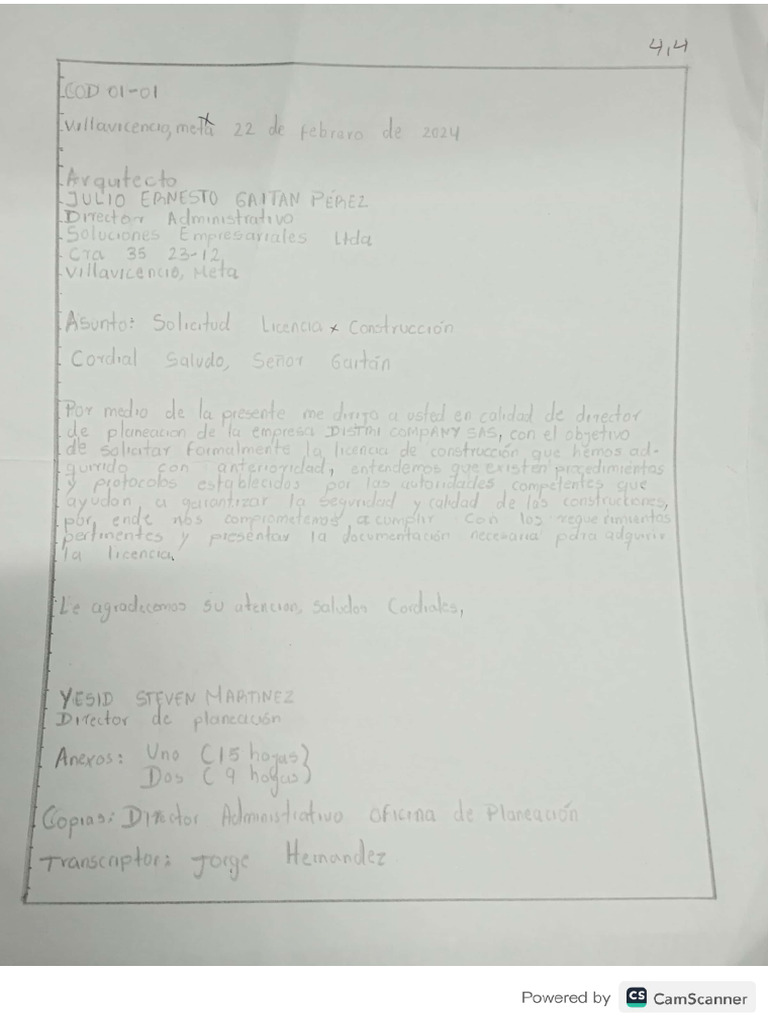 4,4
COD 01-01
Villavicencio, meta 22 de febrero de 2024
Arquitecto
JULIO ERNESTO GAITAN PÉREZ
Director Administrativo
Soluciones Empresariales Ltda
Cra 35 23-12,
Villavicencio, Meta
Asunto: Solicitud Licencia x Construcción
Cordial Saludo, Señor Gaitán
Por medio de la presente me dirijo a usted en calidad de director
de planeacion de la empresa DISTMI COMPANY SAS, con el objetivo
de solicitar formalmente la licencia de construcción que hemos ad-
quirido con anterioridad, entendemos que existen procedimientos
y protocolos establecidos por las autoridades competentes que
ayudan a garantizar la seguridad y calidad de las construcciones,
por ende nos comprometemos a cumplir con los requerimientos
pertinentes y presentar la documentación necesaria para adquirir
la licencia.
Le agradecemos su atencion, saludos Cordiales,
YESID STEVEN MARTINEZ
Director de planeación
Anexos: Uno (15 hojas)
Dos (9 hojas)
Copias: Director Administrativo Oficina de Planeación
Transcriptor: Jorge Hernandez
Powered by CS CamScanner